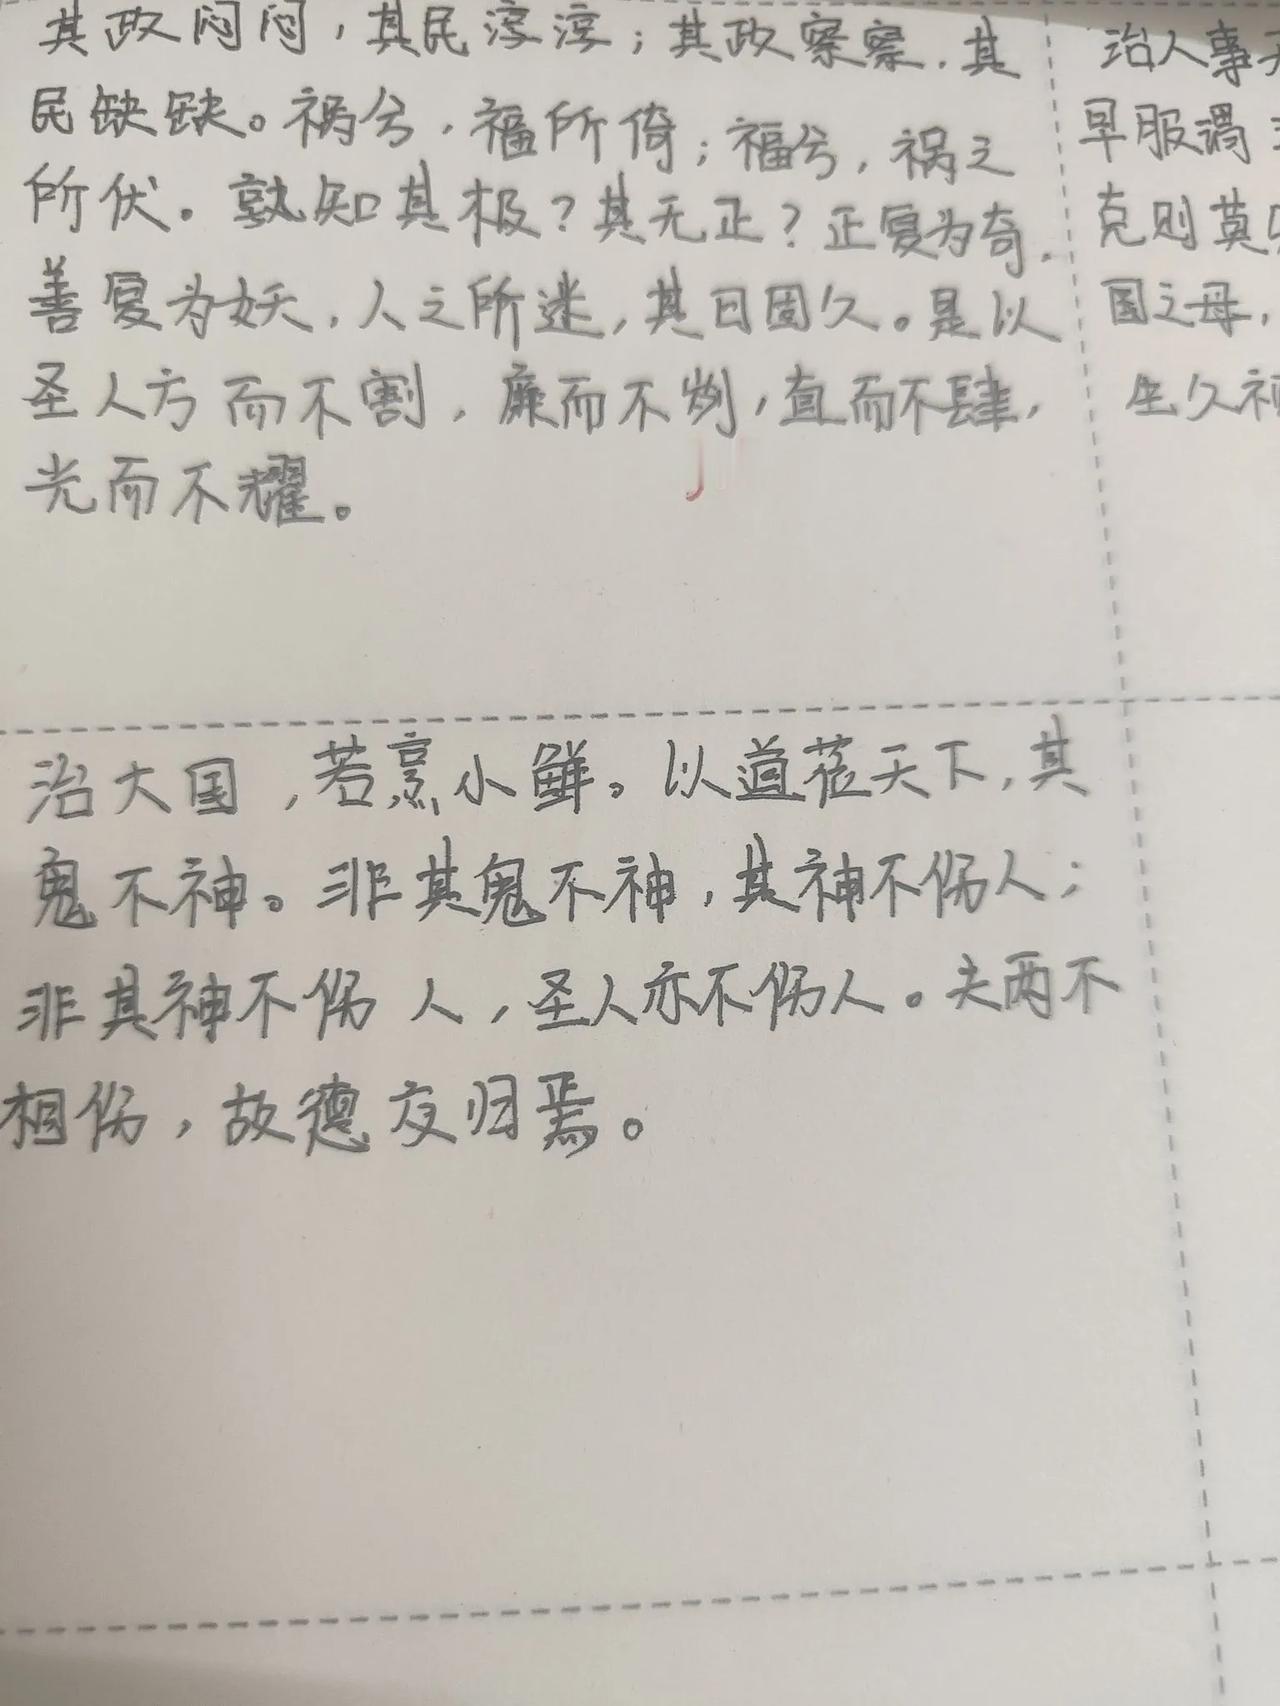 其政闷闷，其民淳淳；其政察察，其
民缺缺。祸兮，福所倚；福兮，祸之
所伏。孰知其极？其无正？正复为奇，
善复为妖，人之所迷，其日固久。是以
圣人方而不割，廉而不刿，直而不肆，
光而不耀。
治人事天
早服谓之
克则莫
国之母，
生久视
治大国，若烹小鲜。以道莅天下，其
鬼不神。非其鬼不神，其神不伤人；
非其神不伤人，圣人亦不伤人。夫两不
相伤，故德交归焉。